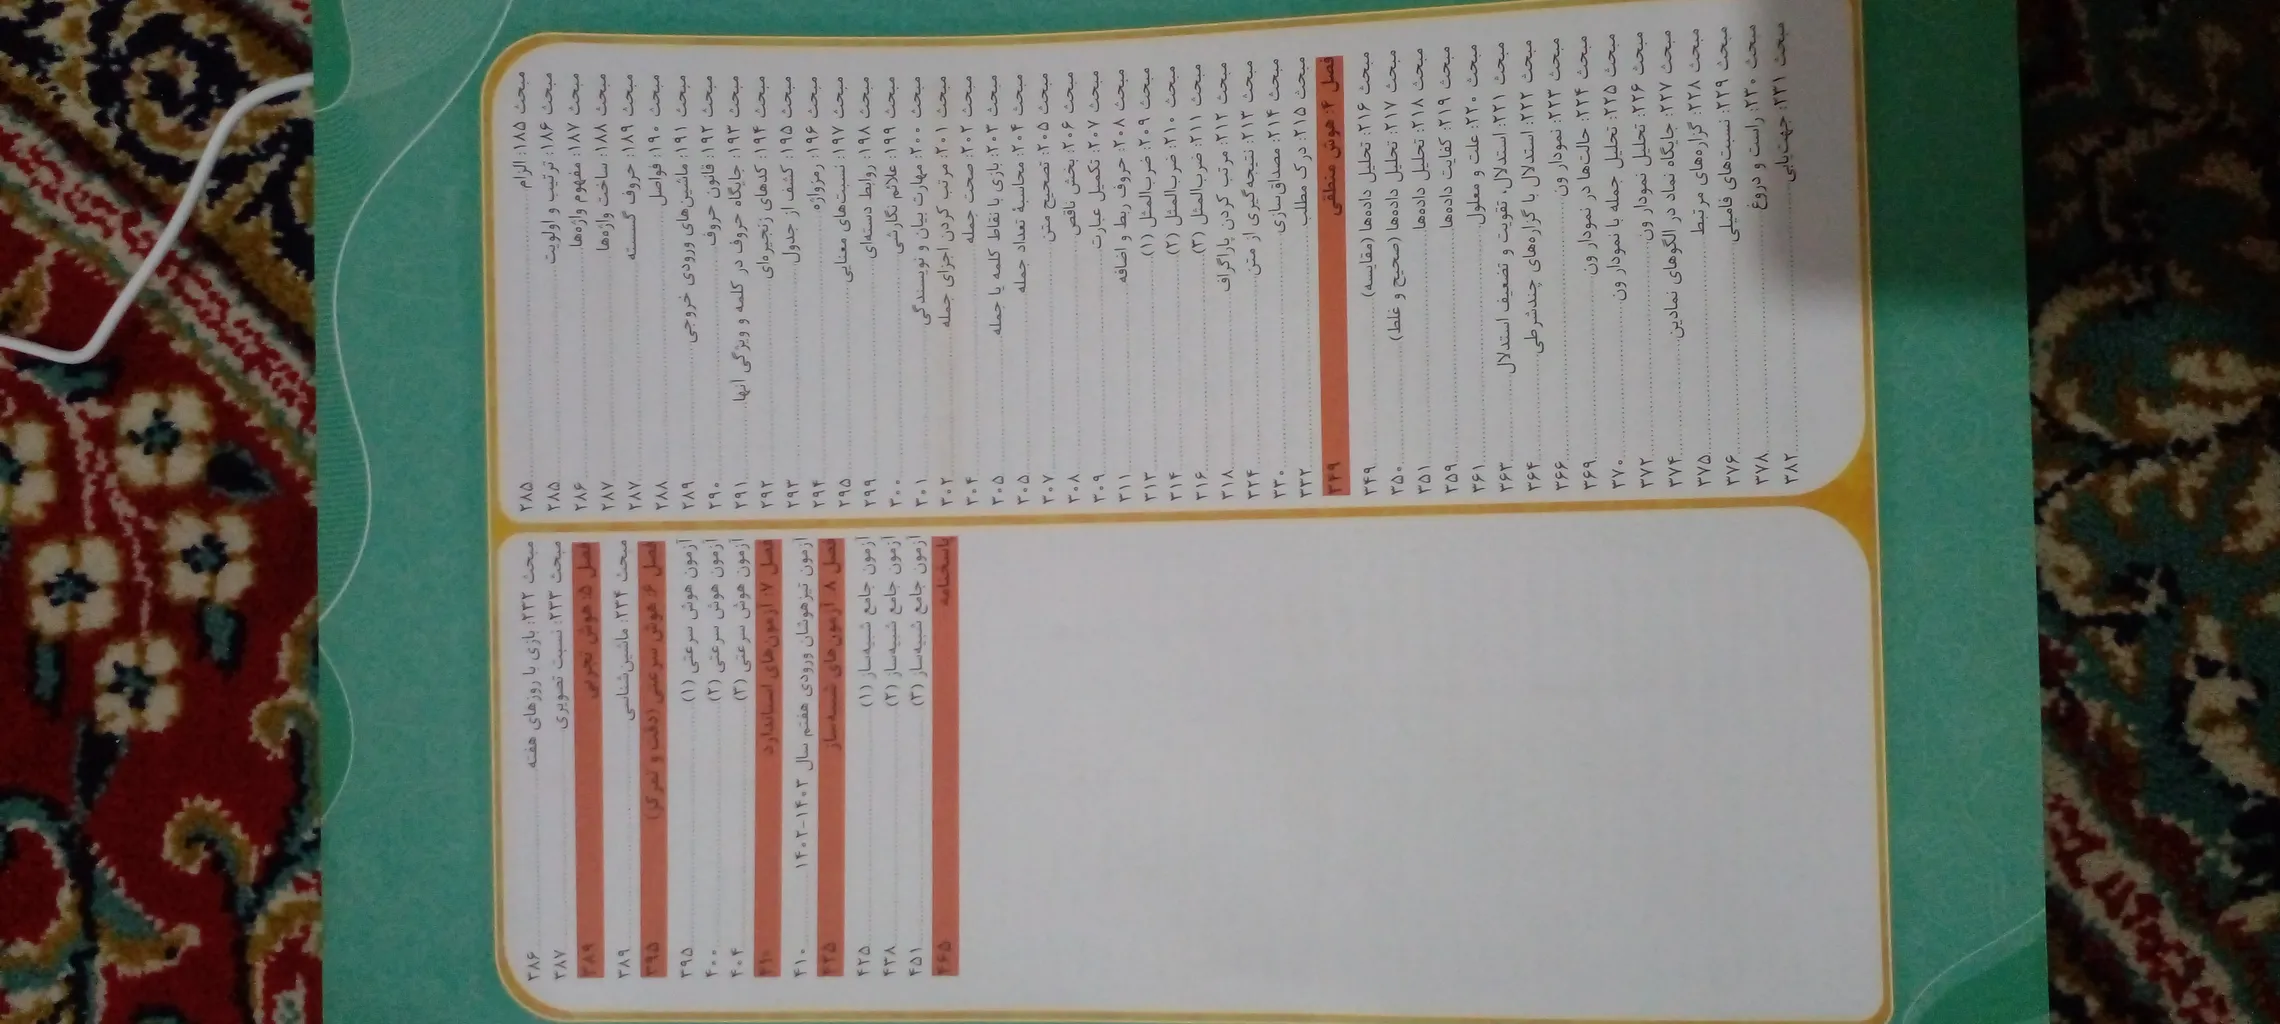 مبحث ۱۸۵: الزام ........ ۲۸۵
مبحث ۱۸۶: ترتیب و اولویت ........ ۲۸۵
مبحث ۱۸۷: مفهوم واژه‌ها ........ ۲۸۶
مبحث ۱۸۸: ساخت واژه‌ها ........ ۲۸۷
مبحث ۱۸۹: حروف گسسته ........ ۲۸۷
مبحث ۱۹۰: فواصل ........ ۲۸۸
مبحث ۱۹۱: ماشین‌های ورودی خروجی ........ ۲۸۹
مبحث ۱۹۲: قانون حروف ........ ۲۹۰
مبحث ۱۹۳: جایگاه حروف در کلمه و ویژگی آنها ........ ۲۹۱
مبحث ۱۹۴: کدهای زنجیره‌ای ........ ۲۹۲
مبحث ۱۹۵: کشف از جدول ........ ۲۹۳
مبحث ۱۹۶: رمزواژه ........ ۲۹۴
مبحث ۱۹۷: نسبت‌های معنایی ........ ۲۹۵
مبحث ۱۹۸: روابط دسته‌ای ........ ۲۹۹
مبحث ۱۹۹: علائم نگارشی ........ ۳۰۰
مبحث ۲۰۰: مهارت بیان و نویسندگی ........ ۳۰۱
مبحث ۲۰۱: مرتب کردن اجزای جمله ........ ۳۰۲
مبحث ۲۰۲: صحت جمله ........ ۳۰۴
مبحث ۲۰۳: بازی با نقاط کلمه یا جمله ........ ۳۰۵
مبحث ۲۰۴: محاسبهٔ تعداد جمله ........ ۳۰۵
مبحث ۲۰۵: تصحیح متن ........ ۳۰۷
مبحث ۲۰۶: بخش ناقص ........ ۳۰۸
مبحث ۲۰۷: تکمیل عبارت ........ ۳۰۹
مبحث ۲۰۸: حروف ربط و اضافه ........ ۳۱۱
مبحث ۲۰۹: ضرب‌المثل (۱) ........ ۳۱۳
مبحث ۲۱۰: ضرب‌المثل (۲) ........ ۳۱۴
مبحث ۲۱۱: ضرب‌المثل (۳) ........ ۳۱۶
مبحث ۲۱۲: مرتب کردن پاراگراف ........ ۳۱۸
مبحث ۲۱۳: نتیجه‌گیری از متن ........ ۳۲۴
مبحث ۲۱۴: مصداق‌سازی ........ ۳۳۰
مبحث ۲۱۵: درک مطلب ........ ۳۳۲
فصل ۴: هوش منطقی ۳۴۹
مبحث ۲۱۶: تحلیل داده‌ها (مقایسه) ........ ۳۴۹
مبحث ۲۱۷: تحلیل داده‌ها (صحیح و غلط) ........ ۳۵۰
مبحث ۲۱۸: تحلیل داده‌ها ........ ۳۵۱
مبحث ۲۱۹: کفایت داده‌ها ........ ۳۵۹
مبحث ۲۲۰: علت و معلول ........ ۳۶۱
مبحث ۲۲۱: استدلال، تقویت و تضعیف استدلال ........ ۳۶۳
مبحث ۲۲۲: استدلال با گزاره‌های چندشرطی ........ ۳۶۴
مبحث ۲۲۳: نمودار ون ........ ۳۶۶
مبحث ۲۲۴: حالت‌ها در نمودار ون ........ ۳۶۹
مبحث ۲۲۵: تحلیل جمله با نمودار ون ........ ۳۷۰
مبحث ۲۲۶: تحلیل نمودار ون ........ ۳۷۲
مبحث ۲۲۷: جایگاه نماد در الگوهای نمادین ........ ۳۷۴
مبحث ۲۲۸: گزاره‌های مرتبط ........ ۳۷۵
مبحث ۲۲۹: نسبت‌های فامیلی ........ ۳۷۶
مبحث ۲۳۰: راست و دروغ ........ ۳۷۸
مبحث ۲۳۱: جهت‌یابی ........ ۳۸۲
مبحث ۲۳۲: بازی با روزهای هفته ........ ۳۸۶
مبحث ۲۳۳: نسبت تصویری ........ ۳۸۷
فصل ۵: هوش تجربی ۳۸۹
مبحث ۲۳۴: ماشین‌شناسی ........ ۳۸۹
فصل ۶: هوش سرعتی (دقت و تمرکز) ۳۹۵
آزمون هوش سرعتی (۱) ........ ۳۹۵
آزمون هوش سرعتی (۲) ........ ۴۰۰
آزمون هوش سرعتی (۳) ........ ۴۰۴
فصل ۷: آزمون‌های استاندارد ۴۱۰
آزمون تیزهوشان ورودی هفتم سال ۱۴۰۳-۱۴۰۲ ........ ۴۱۰
فصل ۸: آزمون‌های شبیه‌ساز ۴۲۵
آزمون جامع شبیه‌ساز (۱) ........ ۴۲۵
آزمون جامع شبیه‌ساز (۲) ........ ۴۳۸
آزمون جامع شبیه‌ساز (۳) ........ ۴۵۱
پاسخنامه ۴۶۵